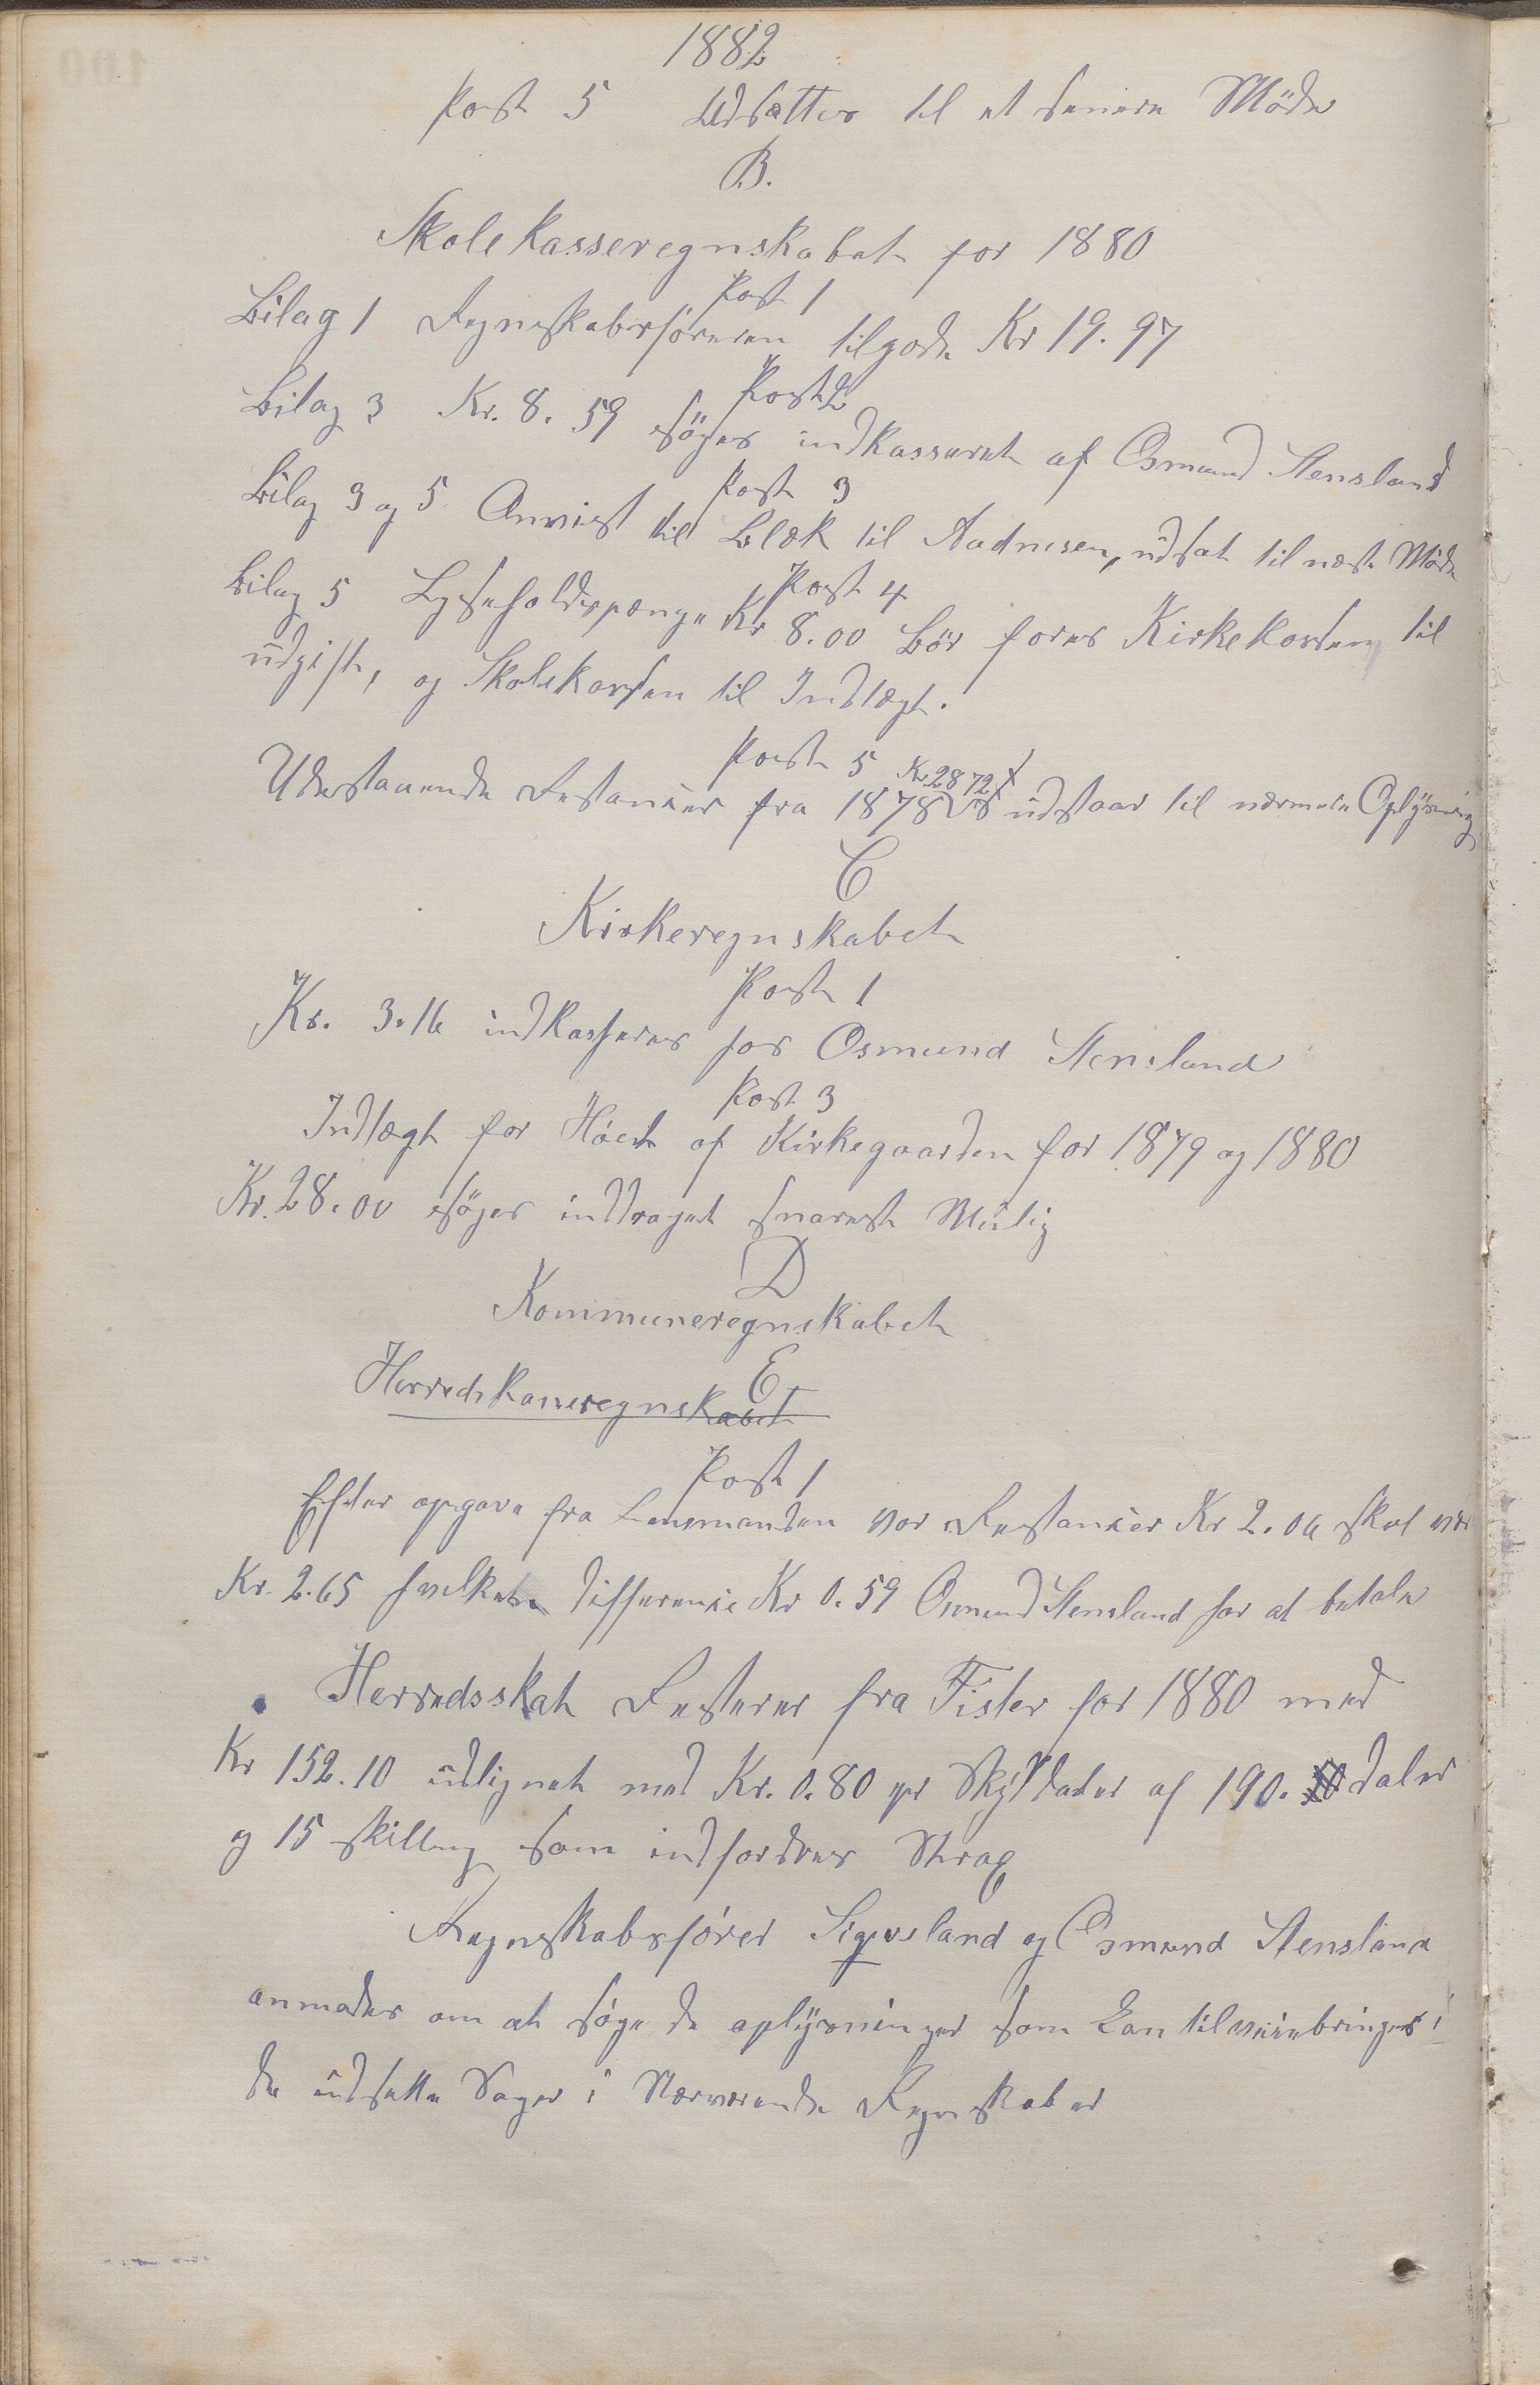 1882
Post 5 Udsættes til et senere Möde
B.
Skolekasseregnskabet for 1880
Post 1
Bilag 1 Regnskabsföreren tilgode Kr 19.97
Post 2
Bilag 3 Kr. 8.59 söges indkasseret af Osmund Stensland
Post 3
Bilag 3 og 5 Anvist til Blæk til Aadnesen, udsat til næste Möde
Post 4
Bilag 5 Lyseholdspenge Kr 8.00 bör föres Kirkekassen til
udgift, og Skolekassen til Indtægt.
Post 5 Kr 28 72
Udestaaende Restancer fra 1878 udstaar til nærmere Oplysning
C
Kirkeregnskabet
Post 1
Kr. 3.16 indkasseres hos Osmund Stensland
Post 3
Indtægt for Höet af Kirkegaarden for 1879 og 1880
Kr. 28.00 söges inddraget snarest Mulig
D
Kommuneregnskabet
E
Herredskasseregnskabet
Post 1
Efter opgave fra Lensmanden var Restancer Kr 2.06 skal vær
Kr. 2.65 hvilken difference Kr 0.59 Osmund Stensland har at betale
Herredsskat Resterer fra Fister for 1880 med
Kr 152.10 udlignet med Kr. 0.80 pr Skylddaler af 190. daler
og 15 skilling som indfordres Strax
Regnskabsförer Sigvesland og Osmund Stensland
anmodes om at söge de oplysninger som kan tilveiebringes i
de udsatte Sager i Nærværende Regnskaber